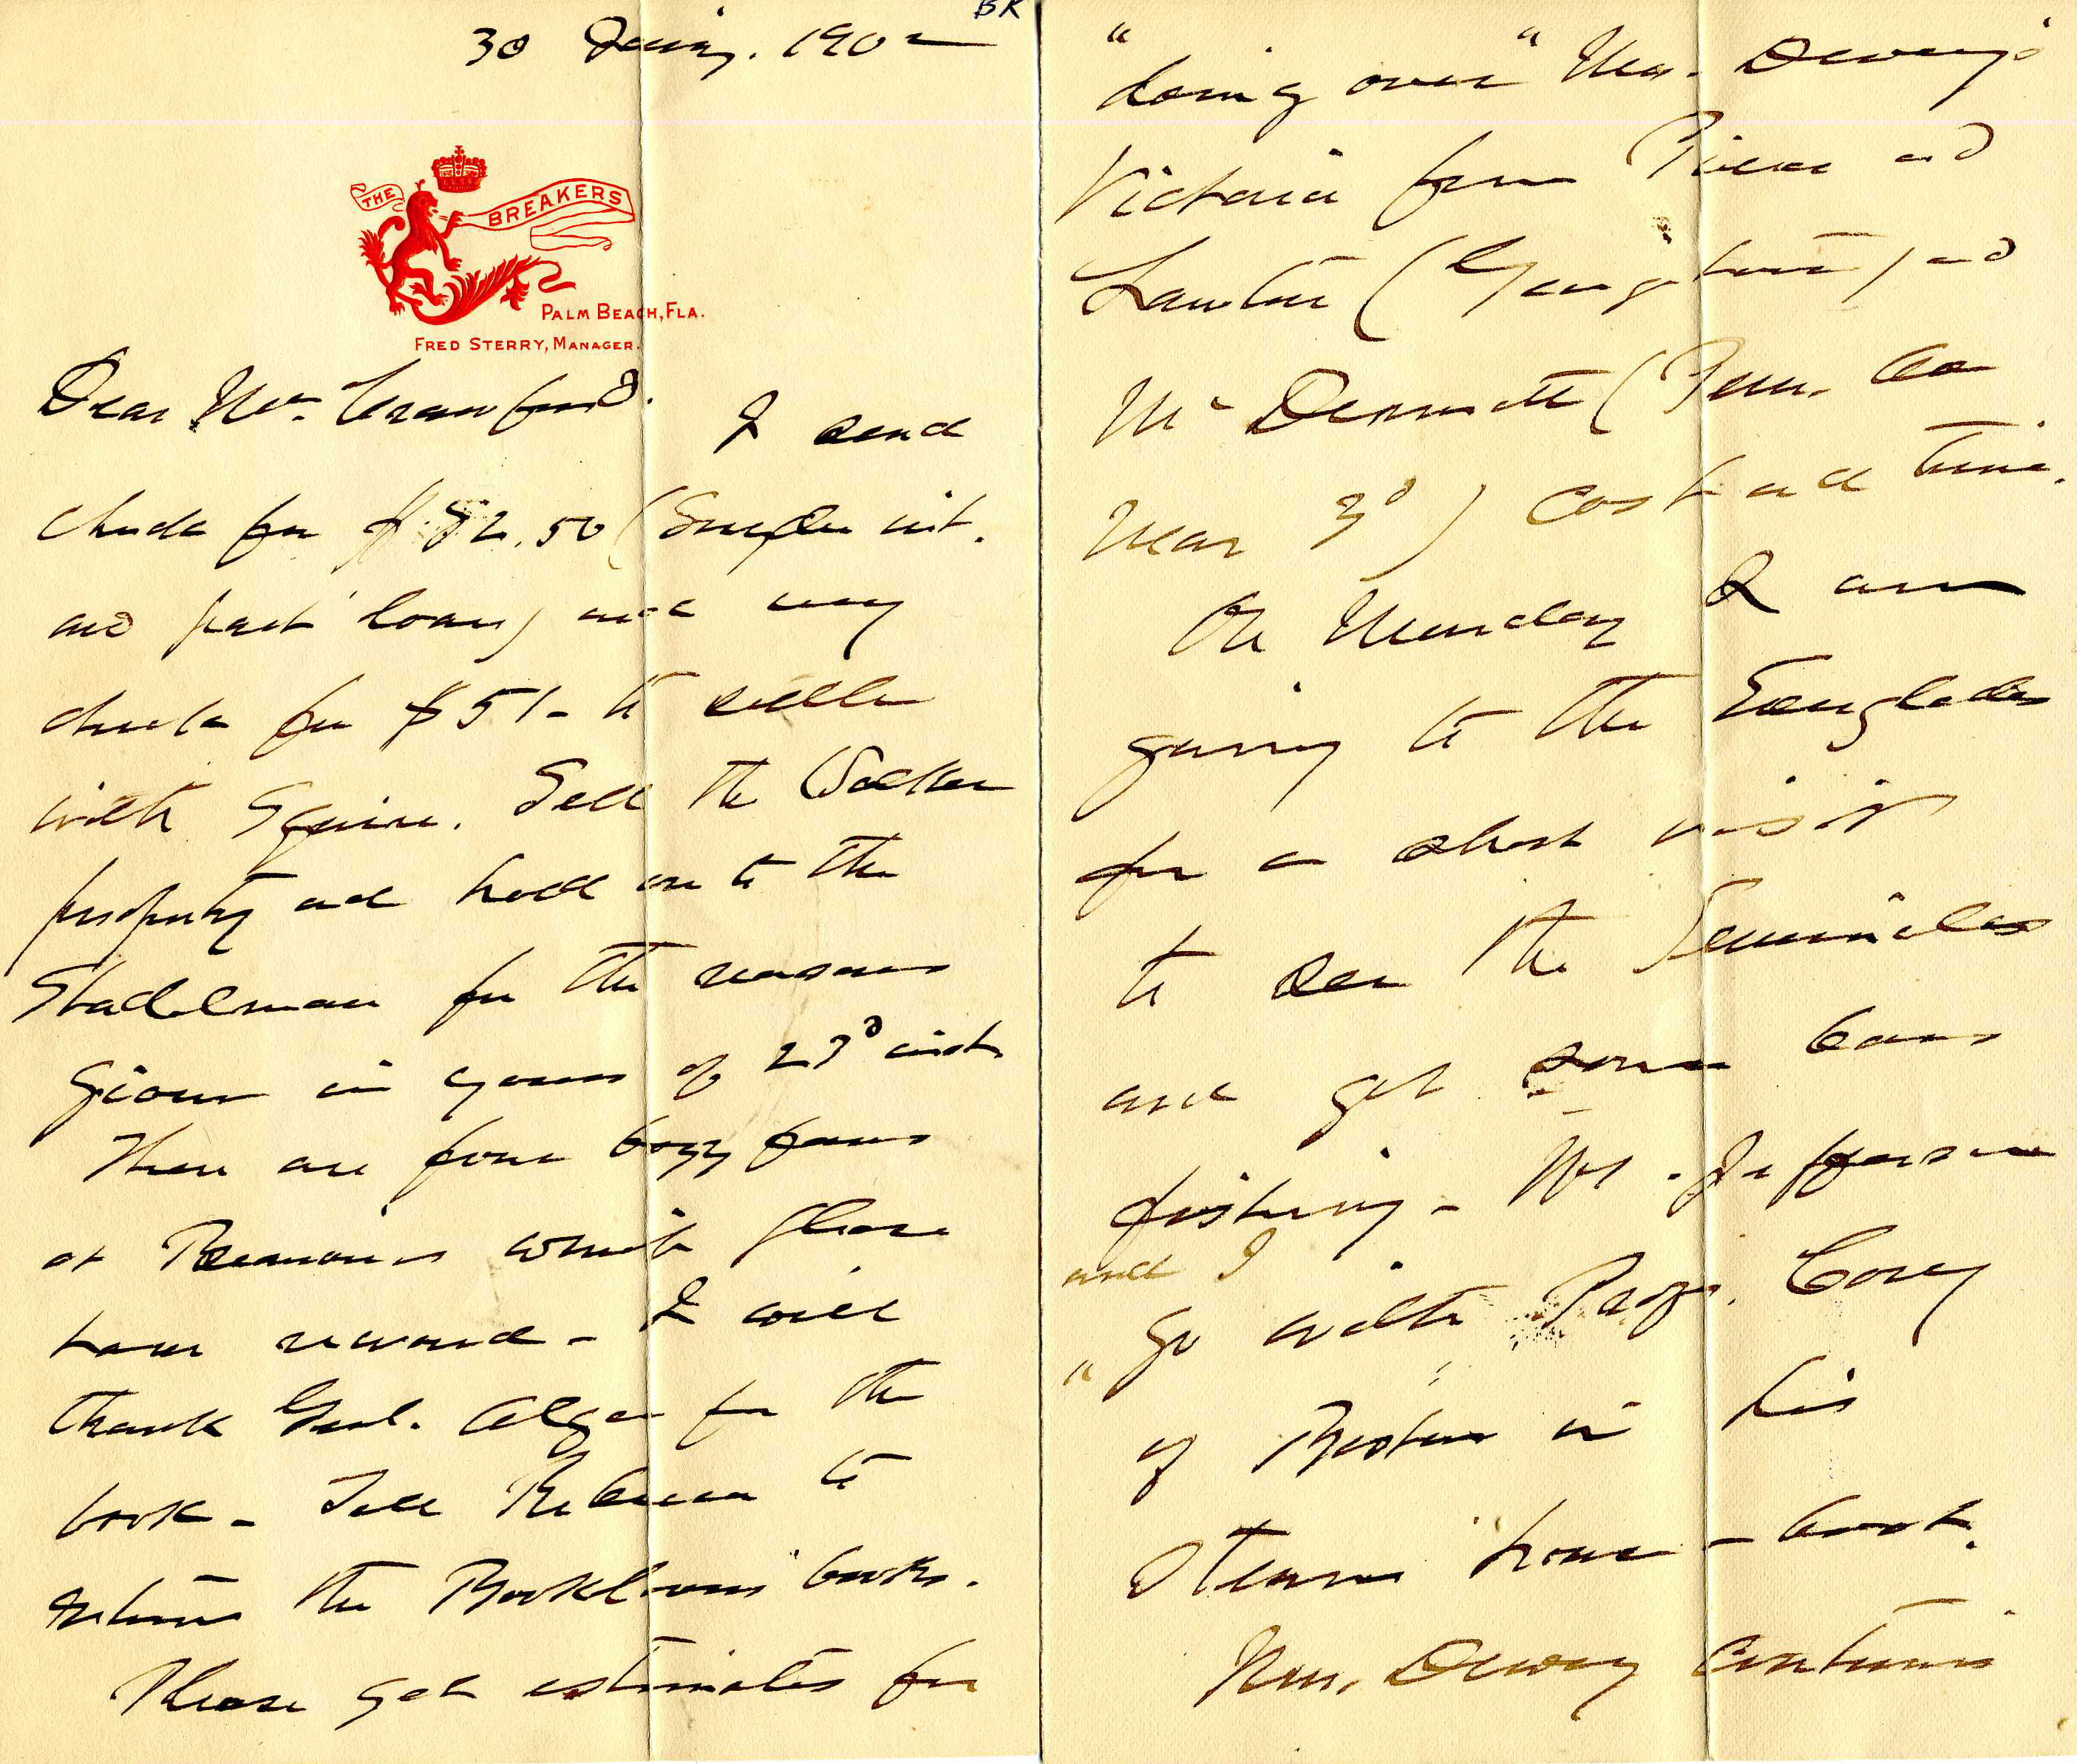 BK
30 Jany. 1902
THE BREAKERS
PALM BEACH, FLA.
FRED STERRY, MANAGER.
Dear Mr. Crawford.
I send
check for $52.50 (Snyder int.
and part loan) and my
check for $51- to settle
with Squire. Sell the Walker
property and hold on to the
Stadelman for the reasons
given in yours of 23d inst.
There are four bogy
at Beauvoir which please
have rewired - I will
thank Genl. Alger for the
book - Tell Rebecca to
return the Booklovers books.
Please get estimates for
"doing over" Mrs. Dewey's
Victoria from and
(Georgetown) and
McDermott (Penn. Ave
near 3d) cost and time.
On Monday I am
going to the Everglades
for a short visit
to see the Seminoles
and get some bass
fishing - Mr. Jefferson
and I
"go with Prof. Cory
of Boston in his
steam house-boat.
Mrs. Dewey continues